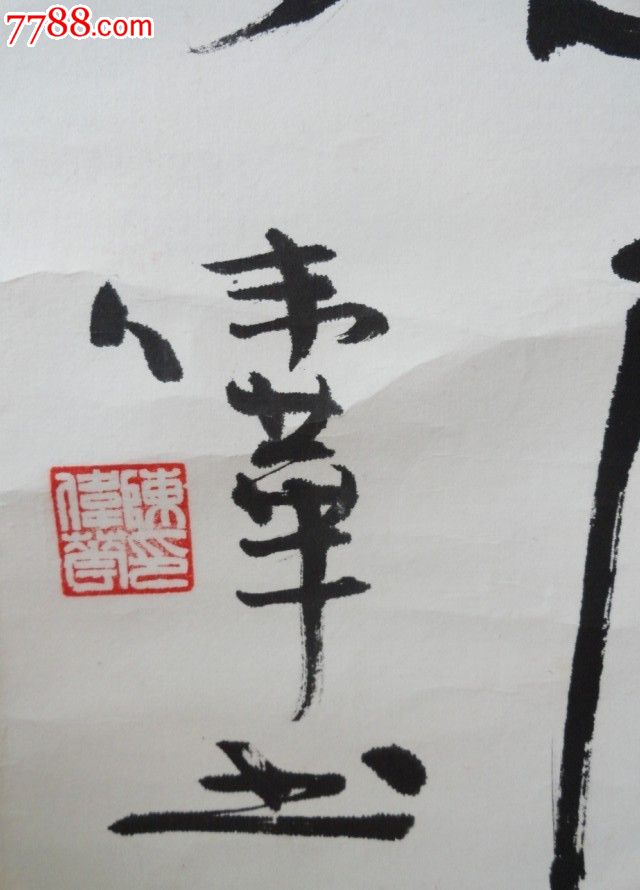 7788.com
伟華书
陳印
偉華